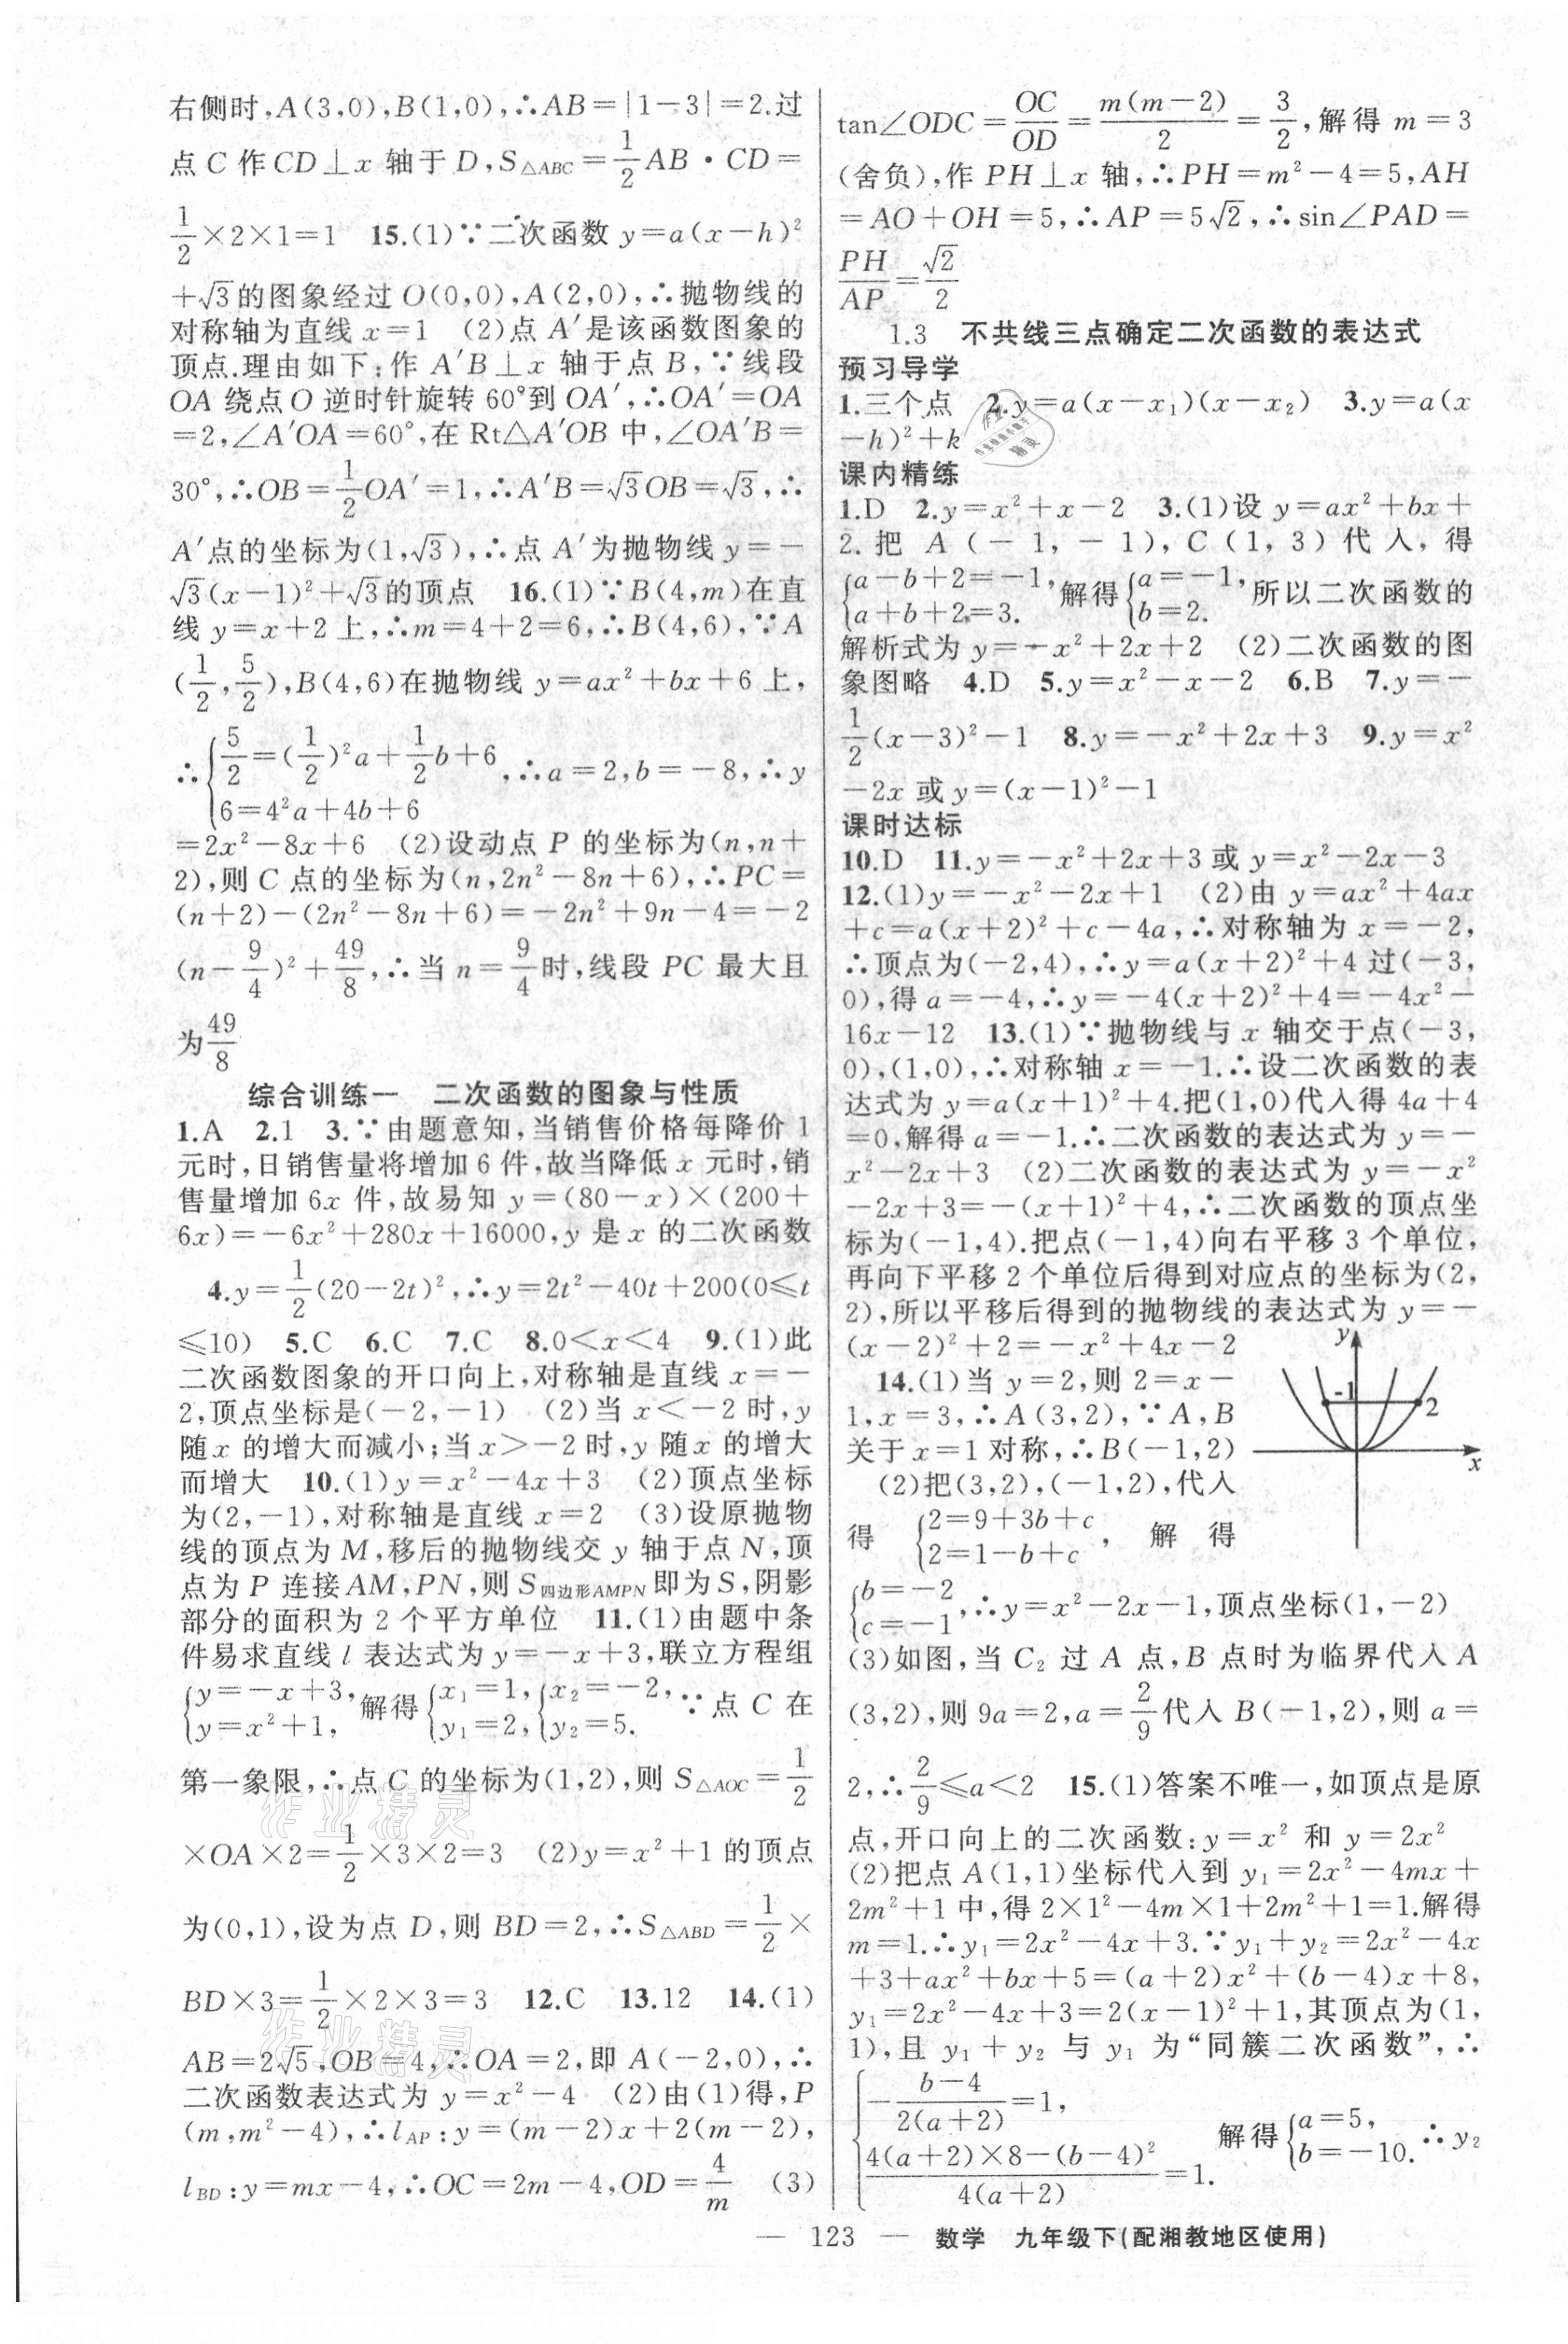 右侧时,A(3,0),B(1,0),∴AB=|1-3|=2.过
点 C 作 CD⊥x 轴于 D,S△ABC=1/2AB·CD=
1/2×2×1=1 15.(1)∵二次函数 y=a(x-h)²
+√3的图象经过 O(0,0),A(2,0),∴抛物线的
对称轴为直线 x=1 (2)点 A′是该函数图象的
顶点.理由如下:作 A′B⊥x 轴于点 B,∵线段
OA 绕点 O 逆时针旋转 60°到 OA′,∴OA′=OA
=2,∠A′OA=60°,在 Rt△A′OB 中,∠OA′B=
30°,∴OB=1/2OA′=1,∴A′B=√3OB=√3,∴
A′点的坐标为(1,√3),∴点 A′为抛物线 y=-
√3(x-1)²+√3的顶点 16.(1)∵B(4,m)在直
线 y=x+2 上,∴m=4+2=6,∴B(4,6),∵A
(1/2,5/2),B(4,6)在抛物线 y=ax²+bx+6 上,
∴{5/2=(1/2)²a+1/2b+6
6=4²a+4b+6 ,∴a=2,b=-8,∴y
=2x²-8x+6 (2)设动点 P 的坐标为(n,n+
2),则 C 点的坐标为(n,2n²-8n+6),∴PC=
(n+2)-(2n²-8n+6)=-2n²+9n-4=-2
(n-9/4)²+49/8,∴当 n=9/4时,线段 PC 最大且
为49/8
综合训练一 二次函数的图象与性质
1.A 2.1 3.∵由题意知,当销售价格每降价 1
元时,日销售量将增加 6 件,故当降低 x 元时,销
售量增加 6x 件,故易知 y=(80-x)×(200+
6x)=-6x²+280x+16000,y 是 x 的二次函数
4.y=1/2(20-2t)²,∴y=2t²-40t+200(0≤t
≤10) 5.C 6.C 7.C 8.0<x<4 9.(1)此
二次函数图象的开口向上,对称轴是直线 x=-
2,顶点坐标是(-2,-1) (2)当 x<-2 时,y
随 x 的增大而减小;当 x>-2 时,y 随 x 的增大
而增大 10.(1)y=x²-4x+3 (2)顶点坐标
为(2,-1),对称轴是直线 x=2 (3)设原抛物
线的顶点为 M,移后的抛物线交 y 轴于点 N,顶
点为 P 连接AM,PN,则 S四边形AMPN即为S,阴影
部分的面积为 2 个平方单位 11.(1)由题中条
件易求直线 l 表达式为 y=-x+3,联立方程组
{y=-x+3,
y=x²+1, 解得{x₁=1,
y₁=2,{x₂=-2,
y₂=5. ∵点 C 在
第一象限,∴点 C 的坐标为(1,2),则 S△AOC=1/2
×OA×2=1/2×3×2=3 (2)y=x²+1 的顶点
为(0,1),设为点 D,则 BD=2,∴S△ABD=1/2×
BD×3=1/2×2×3=3 12.C 13.12 14.(1)
AB=2√5,OB=4,∴OA=2,即 A(-2,0),∴
二次函数表达式为 y=x²-4 (2)由(1)得,P
(m,m²-4),∴lAP:y=(m-2)x+2(m-2),
lBD:y=mx-4,∴OC=2m-4,OD=4/m (3)
tan∠ODC=OC/OD=m(m-2)/2=3/2,解得 m=3
(舍负),作 PH⊥x 轴,∴PH=m²-4=5,AH
=AO+OH=5,∴AP=5√2,∴sin∠PAD=
PH/AP=√2/2
1.3 不共线三点确定二次函数的表达式
预习导学
1.三个点 2.y=a(x-x₁)(x-x₂) 3.y=a(x
-h)²+k
课内精练
1.D 2.y=x²+x-2 3.(1)设 y=ax²+bx+
2.把 A(-1,-1),C(1,3)代入,得
{a-b+2=-1,
a+b+2=3. 解得{a=-1,
b=2. 所以二次函数的
解析式为 y=-x²+2x+2 (2)二次函数的图
象图略 4.D 5.y=x²-x-2 6.B 7.y=-
1/2(x-3)²-1 8.y=-x²+2x+3 9.y=x²
-2x 或 y=(x-1)²-1
课时达标
10.D 11.y=-x²+2x+3 或 y=x²-2x-3
12.(1)y=-x²-2x+1 (2)由 y=ax²+4ax
+c=a(x+2)²+c-4a,∴对称轴为 x=-2,
∴顶点为(-2,4),∴y=a(x+2)²+4 过(-3,
0),得 a=-4,∴y=-4(x+2)²+4=-4x²-
16x-12 13.(1)∵抛物线与 x 轴交于点(-3,
0),(1,0),∴对称轴 x=-1.∴设二次函数的表
达式为 y=a(x+1)²+4.把(1,0)代入得 4a+4
=0,解得 a=-1.∴二次函数的表达式为 y=-
x²-2x+3 (2)二次函数的表达式为 y=-x²
-2x+3=-(x+1)²+4,∴二次函数的顶点坐
标为(-1,4).把点(-1,4)向右平移 3 个单位,
再向下平移 2 个单位后得到对应点的坐标为(2,
2),所以平移后得到的抛物线的表达式为 y=-
(x-2)²+2=-x²+4x-2
14.(1)当 y=2,则 2=x-
1,x=3,∴A(3,2),∵A,B
关于 x=1 对称,∴B(-1,2)
(2)把(3,2),(-1,2),代入
得 {2=9+3b+c
2=1-b+c , 解 得
{b=-2
c=-1,∴y=x²-2x-1,顶点坐标(1,-2)
y
-1
2
x
(3)如图,当 C₂ 过 A 点,B 点时为临界代入 A
(3,2),则 9a=2,a=2/9代入 B(-1,2),则 a=
2,∴2/9≤a<2 15.(1)答案不唯一,如顶点是原
点,开口向上的二次函数:y=x² 和 y=2x²
(2)把点 A(1,1)坐标代入到 y₁=2x²-4mx+
2m²+1 中,得 2×1²-4m×1+2m²+1=1.解得
m=1.∴y₁=2x²-4x+3.∵y₁+y₂=2x²-4x
+3+ax²+bx+5=(a+2)x²+(b-4)x+8,
y₁=2x²-4x+3=2(x-1)²+1,其顶点为(1,
1),且 y₁+y₂ 与 y₁ 为“同簇二次函数”,∴
{-(b-4)/2(a+2)=1,
4(a+2)×8-(b-4)²/4(a+2)=1. 解得{a=5,
b=-10. ∴y₂
— 123 — 数学 九年级下(配湘教地区使用)
作业精灵
作业精灵